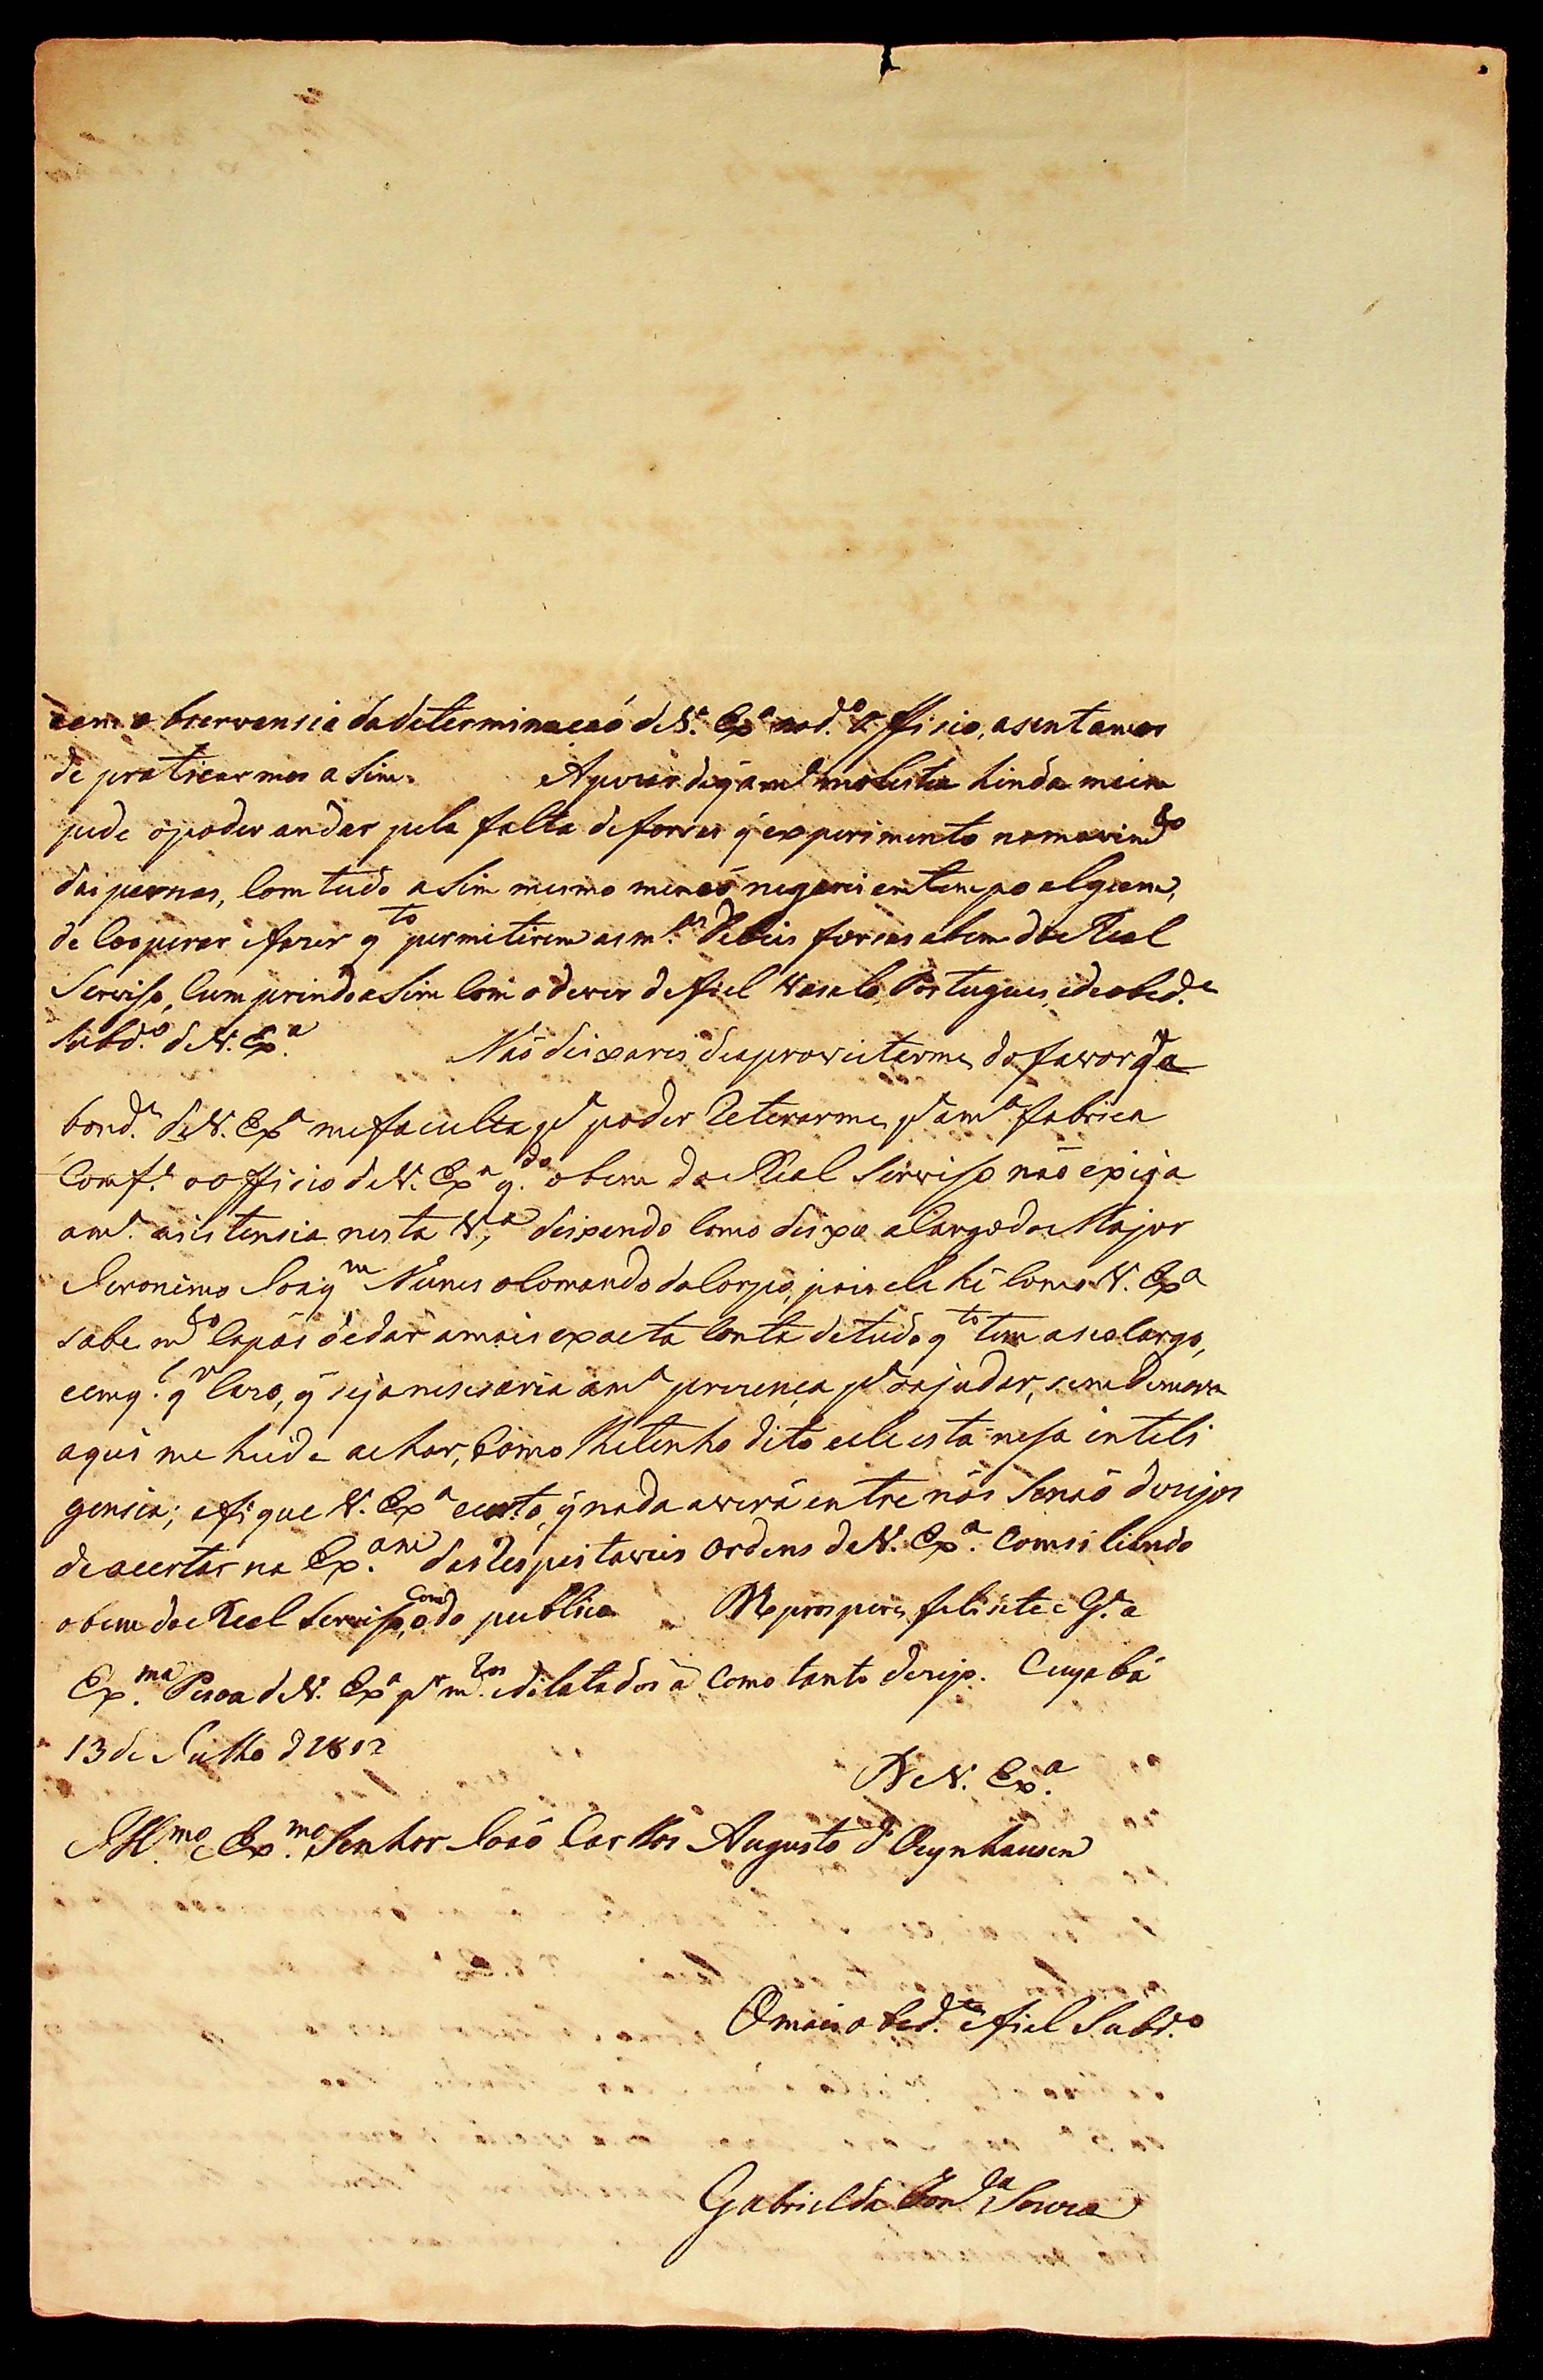 e em observensia da determinacaó de V. Exa no d.o Officio, asentamos
de praticarmos asim. Apezar de q̃ a m.a molestia hinda me im
pede o poder andar pela falta de forsas q̃ experimento no movim.to
das pernas, Com tudo asim mesmo me naó negarei em tempo algum,
de Cooperar e fazer q.to permitirem as m.as debeis forsas a bem do Real
Servisso, Cumprindo asim Com o dever de fiel Vasalo Portugues, e de obed.e
Subd.o de V. Ex.a Naó deixarei de aproveitarme do favor q̃ a
bond.e de V. Ex.a me faculta p.a poder Reterarme p.a a m.a fabrica
Comf.e o officio de V. Ex.a q.do o bem do Real Servisso naõ exija
a m.a asistensia nesta V.a, deixando Como deixo a Cargo do Major
Jeronimo Joaq.m Nunes o Comando do Corpo, pois ele hé Como V. Ex.a
sabe m.to Capás de dar a mais exacta Conta de tudo q.to tem a seo Cargo,
e em q.l q.r Cazo, q̃ seja nesesaria a m.a prezença p.a o ajudar, sem demora
aqui me heide achar, Como lhe tenho dito e ele está nesa inteli
gensia; e fique V. Ex.a certo, q̃ nada averá entre nós Senaó dezejos
de acertar na Ex.am das Respeitaveis Ordens de V. Ex.a Comsiliando
o bem do Real Servisso, Com o do publico Ds prospere, felisite e G.e a
Ex.ma Pesoa de V. Ex.a p.r m.tos e dilatados ã Como tanto dezejo. Cuyabá
13 de Julho d 1812
De V. Ex.a
Ill.mo e Ex.mo Senhor Joaó Carllos Augusto d'Oeynhausen
O mais obed.te e fiel Subd.o
Gabriel da Fon.ca Souza